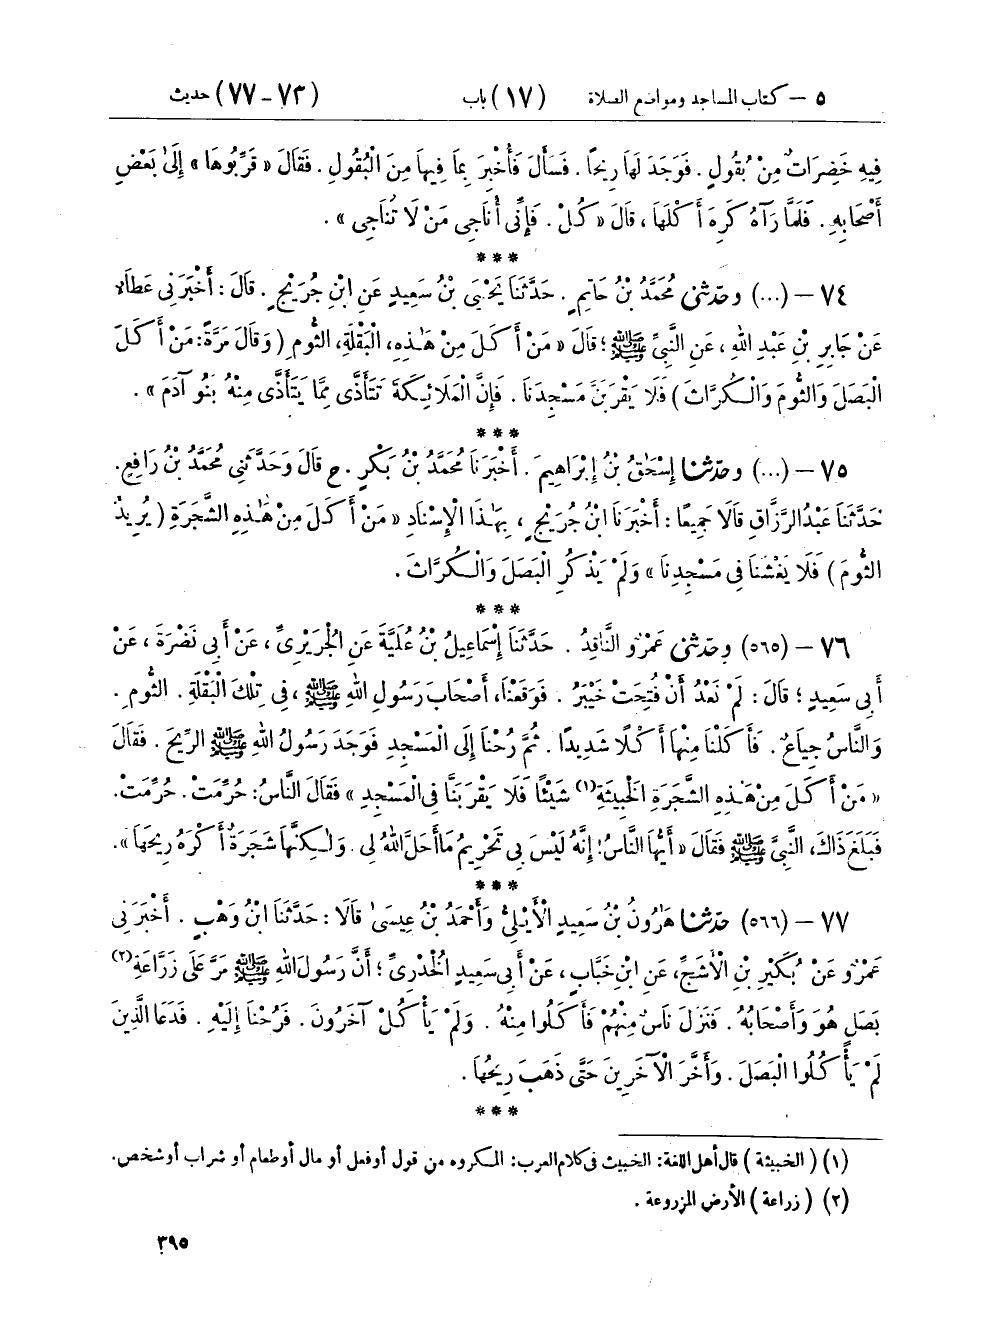 ٥ – كتاب المساجد ومواضع الصلاة (١٧) باب (٧٣-٧٧) حديث
فِيهِ خَضِرَاتٌ مِنْ بُقُولٍ. فَوَجَدَ لَهَا رِيحًا. فَسَأَلَ فَأُخْبِرَ بِمَا فِيهَا مِنَ الْبُقُولِ. فَقَالَ « قَرِّبُوهَا » إِلَىٰ بَعْضِ
أَصْحَابِهِ. فَلَمَّا رَآهُ كَرِهَ أَكْلَهَا، قَالَ « كُلْ. فَإِنِّي أُنَاجِي مَنْ لَا تُنَاجِي ».
***
٧٤ – (...) وحَدَّثَنِي مُحَمَّدُ بْنُ حَاتِمٍ. حَدَّثَنَا يَحْيَى بْنُ سَعِيدٍ عَنِ ابْنِ جُرَيْجٍ. قَالَ: أَخْبَرَنِي عَطَاءٌ
عَنْ جَابِرِ بْنِ عَبْدِ اللهِ، عَنِ النَّبِيِّ ﷺ؛ قَالَ « مَنْ أَكَلَ مِنْ هَٰذِهِ، الْبَقْلَةِ، الثُّومِ ( وَقَالَ مَرَّةً: مَنْ أَكَلَ
الْبَصَلَ وَالثُّومَ وَالْكُرَّاثَ ) فَلَا يَقْرَبَنَّ مَسْجِدَنَا. فَإِنَّ الْمَلَائِكَةَ تَتَأَذَّى مِمَّا يَتَأَذَّى مِنْهُ بَنُو آدَمَ ».
***
٧٥ – (...) وحَدَّثَنَا إِسْحَٰقُ بْنُ إِبْرَاهِيمَ. أَخْبَرَنَا مُحَمَّدُ بْنُ بَكْرٍ. ح قَالَ وَحَدَّثَنِي مُحَمَّدُ بْنُ رَافِعٍ.
حَدَّثَنَا عَبْدُ الرَّزَّاقِ قَالَا جَمِيعًا: أَخْبَرَنَا ابْنُ جُرَيْجٍ، بِهَٰذَا الْإِسْنَادِ « مَنْ أَكَلَ مِنْ هَٰذِهِ الشَّجَرَةِ ( يُرِيدُ
الثُّومَ ) فَلَا يَغْشَنَا فِي مَسْجِدِنَا » وَلَمْ يَذْكُرِ الْبَصَلَ وَالْكُرَّاثَ.
***
٧٦ – (٥٦٥) وحَدَّثَنِي عَمْرٌو النَّاقِدُ. حَدَّثَنَا إِسْمَاعِيلُ بْنُ عُلَيَّةَ عَنِ الْجُرَيْرِيِّ، عَنْ أَبِي نَضْرَةَ، عَنْ
أَبِي سَعِيدٍ؛ قَالَ: لَمْ نَعْدُ أَنْ فُتِحَتْ خَيْبَرُ. فَوَقَعْنَا، أَصْحَابَ رَسُولِ اللهِ ﷺ، فِي تِلْكَ الْبَقْلَةِ. الثُّومِ.
وَالنَّاسُ جِيَاعٌ. فَأَكَلْنَا مِنْهَا أَكْلًا شَدِيدًا. ثُمَّ رُحْنَا إِلَى الْمَسْجِدِ فَوَجَدَ رَسُولُ اللهِ ﷺ الرِّيحَ. فَقَالَ
« مَنْ أَكَلَ مِنْ هَٰذِهِ الشَّجَرَةِ الْخَبِيثَةِ(١) شَيْئًا فَلَا يَقْرَبَنَّا فِي الْمَسْجِدِ » فَقَالَ النَّاسُ: حُرِّمَتْ. حُرِّمَتْ.
فَبَلَغَ ذَاكَ، النَّبِيَّ ﷺ فَقَالَ « أَيُّهَا النَّاسُ! إِنَّهُ لَيْسَ بِي تَحْرِيمُ مَا أَحَلَّ اللهُ لِي. وَلَٰكِنَّهَا شَجَرَةٌ أَكْرَهُ رِيحَهَا ».
***
٧٧ – (٥٦٦) حَدَّثَنَا هَٰرُونُ بْنُ سَعِيدٍ الْأَيْلِيُّ وَأَحْمَدُ بْنُ عِيسَىٰ قَالَا: حَدَّثَنَا ابْنُ وَهْبٍ. أَخْبَرَنِي
عَمْرٌو عَنْ بُكَيْرِ بْنِ الْأَشَجِّ، عَنِ ابْنِ خَبَّابٍ، عَنْ أَبِي سَعِيدٍ الْخُدْرِيِّ؛ أَنَّ رَسُولَ اللهِ ﷺ مَرَّ عَلَى زَرَّاعَةِ(٢)
بَصَلٍ هُوَ وَأَصْحَابُهُ. فَنَزَلَ نَاسٌ مِنْهُمْ فَأَكَلُوا مِنْهُ. وَلَمْ يَأْكُلْ آخَرُونَ. فَرُحْنَا إِلَيْهِ. فَدَعَا الَّذِينَ
لَمْ يَأْكُلُوا الْبَصَلَ. وَأَخَّرَ الْآخَرِينَ حَتَّى ذَهَبَ رِيحُهَا.
***
(١) ( الخبيثة ) قال أهل اللغة: الخبيث في كلام العرب: المكروه من قول أو فعل أو مال أو طعام أو شراب أو شخص.
(٢) ( زراعة ) الأرض المزروعة.
٣٩٥